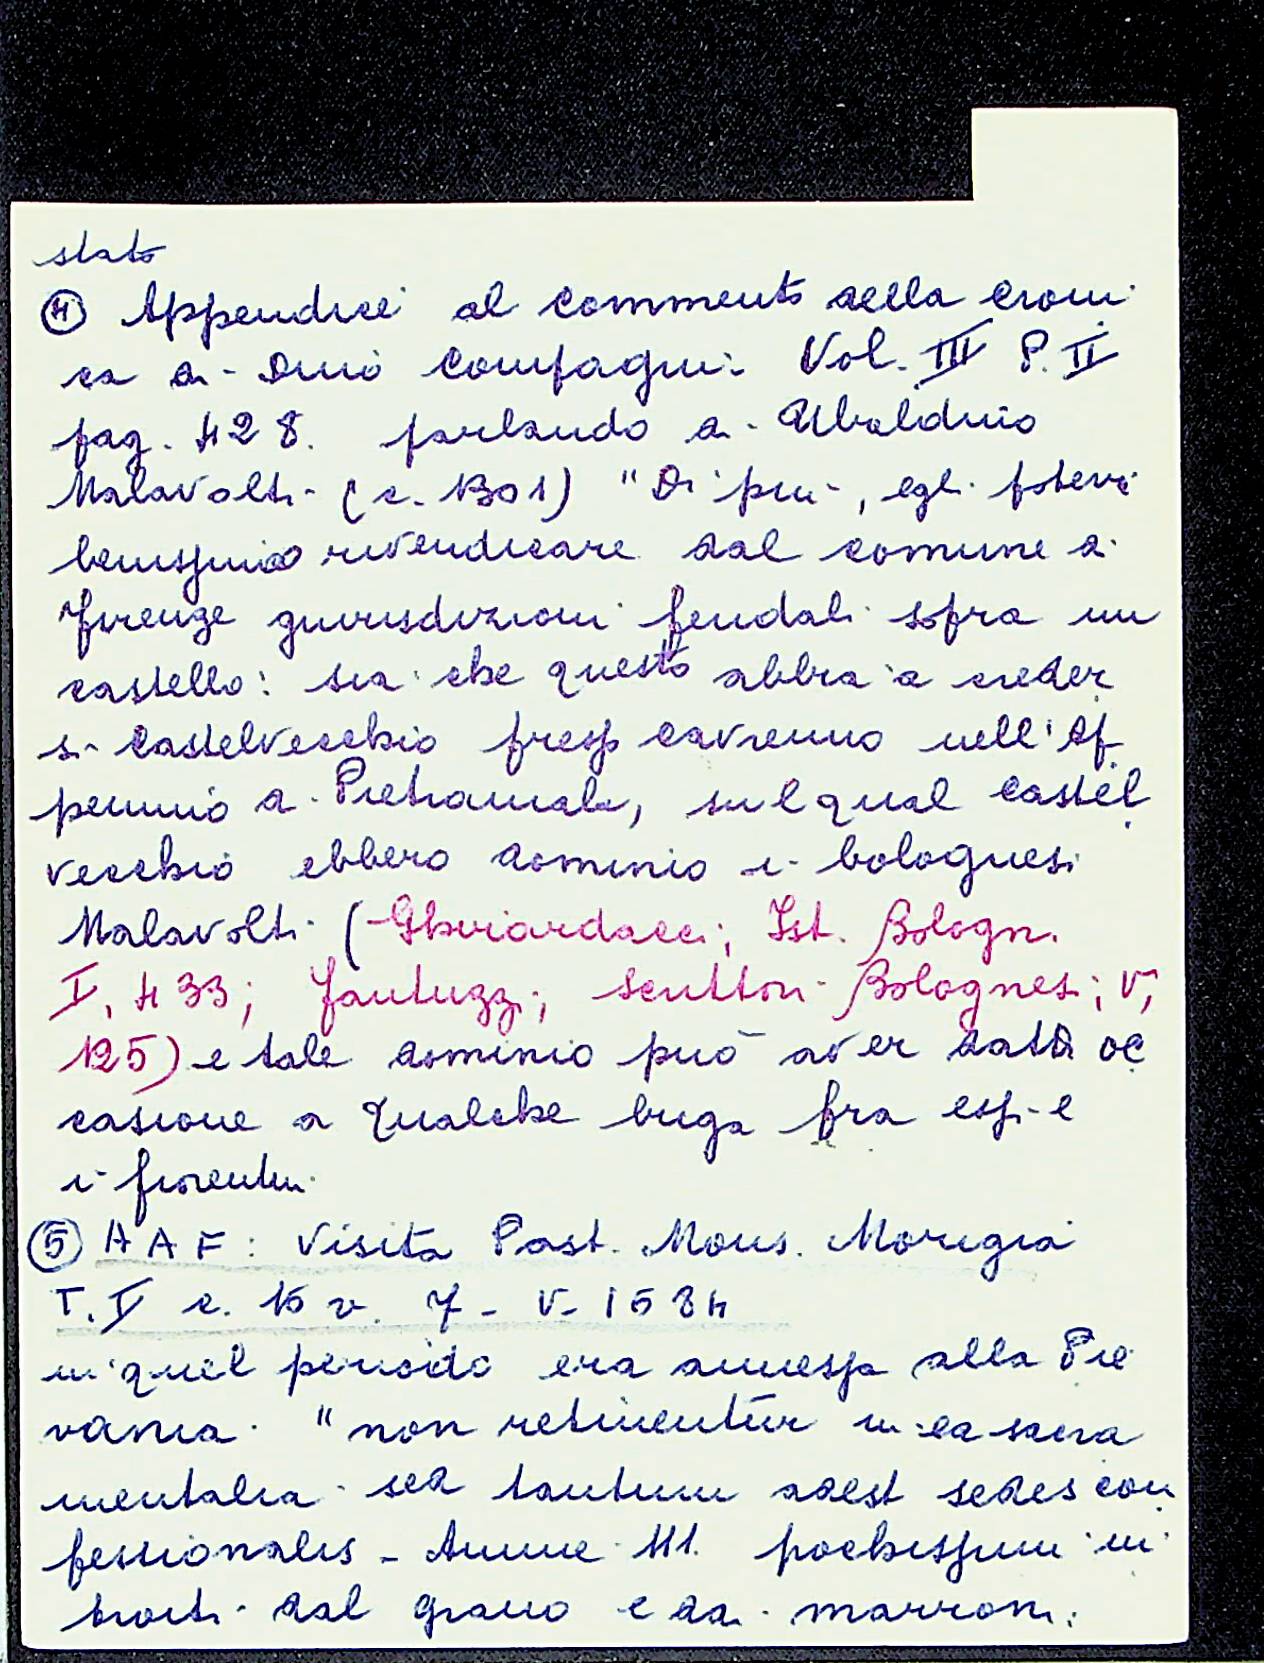 stato
④ Appendici al commento della Croni
ca di Dino Compagni. Vol. III P. II
pag. 428. parlando di Ubaldino
Malavolti (c. 1301) "Di più, egli poteva
benissimo rivendicare dal comune di
Firenze giurisdizioni feudali sopra un
castello: sia che questo abbia a creder
si Castelvecchio presso Cavrenno nell'Ap
pennino di Pietramala, sul qual Castel
vecchio ebbero dominio i bolognesi
Malavolti (Ghirardacci, Ist. Bologn.
I, 433; Fantuzzi, Scrittori Bolognesi, V,
125) e tale dominio può aver dato oc
casione a qualche briga fra essi e
i fiorentini.
⑤ AAF: Visita Past. Mons. Morigia
T. V c. 15 v. 7-V-1584
in quel periodo era annessa alla Pie
vania. "non retinentur in ea sacra
mentalia sed tantum adest sedes con
fessionalis - Anime 111. pochissimi in
troiti dal grano e dai marroni.